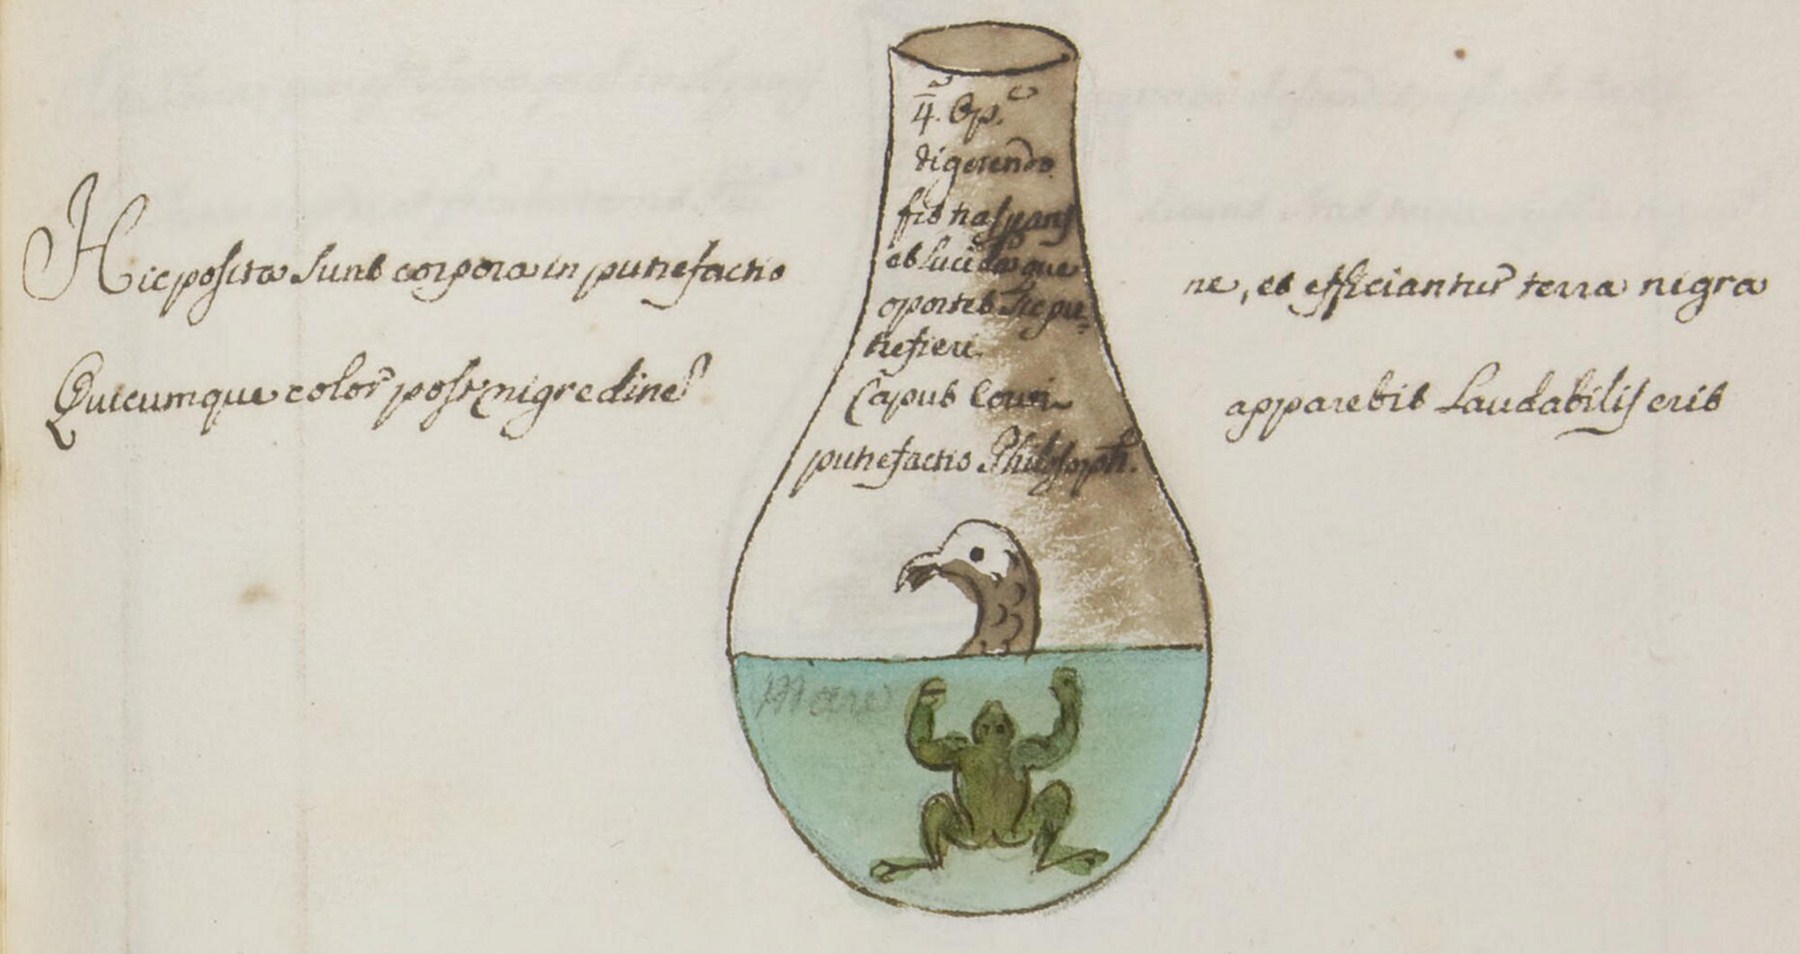 4.ᵃ Op.ᶜ
digerendo
fit trasparˢ
et lucida que
oportet sic pu-
trefieri.
Caput Corvi
putrefactio Philosoph.
Hic posita sunt corpora in putrefactio ne, et efficiantur terra nigra
Quicumque color post nigredine apparebit Laudabilis erit
Mare